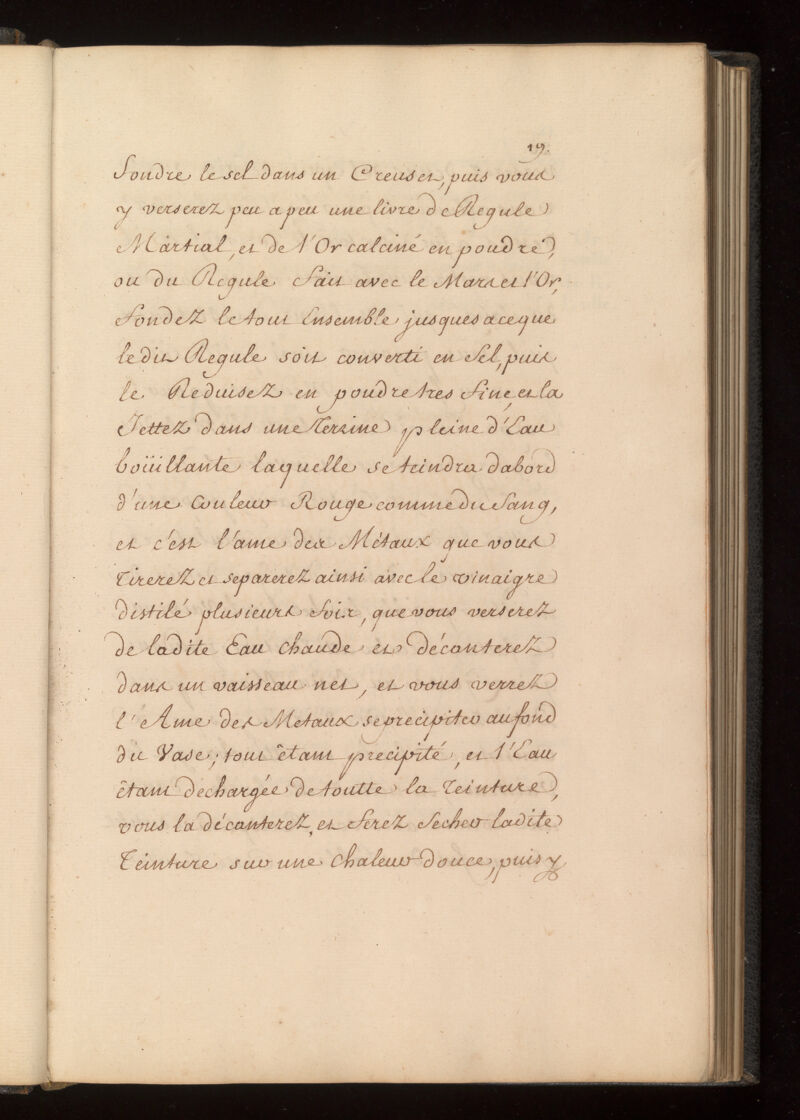 19.
Fondre le sel dans un Creuset, puis vous
y verserez peu a peu une livre de Regule
Martial, et de l'Or calciné en poudre,
ou du Regule Fait avec le Mars et l'Or,
Fondez le tout Ensemble jusques a ce que
ledit Regule soit converti en Sel, puis
le Reduisez en poudre tres Fine, et la
Jettez dans une Terrine pleine d'Eau
boüillante laquelle se teindra dabord
d'une Couleur Rouge comme du Sang,
et c'est l'ame des Métaux que vous
Tirerez et separerez ainsi avec le vinaigre
distilé plusieurs Foix, que vous verserez
de ladite Eau chaude et décanterez
dans un vaisseau net, et vous verrez
l'Ame des Metaux se precipiter au fond
du Vase; tout êtant precipité, et l'Eau
êtant dechargée de toutte la Teinture,
vous la décanterez, et Ferez Secher ladite
Teinture sur une chaleur douce, puis y